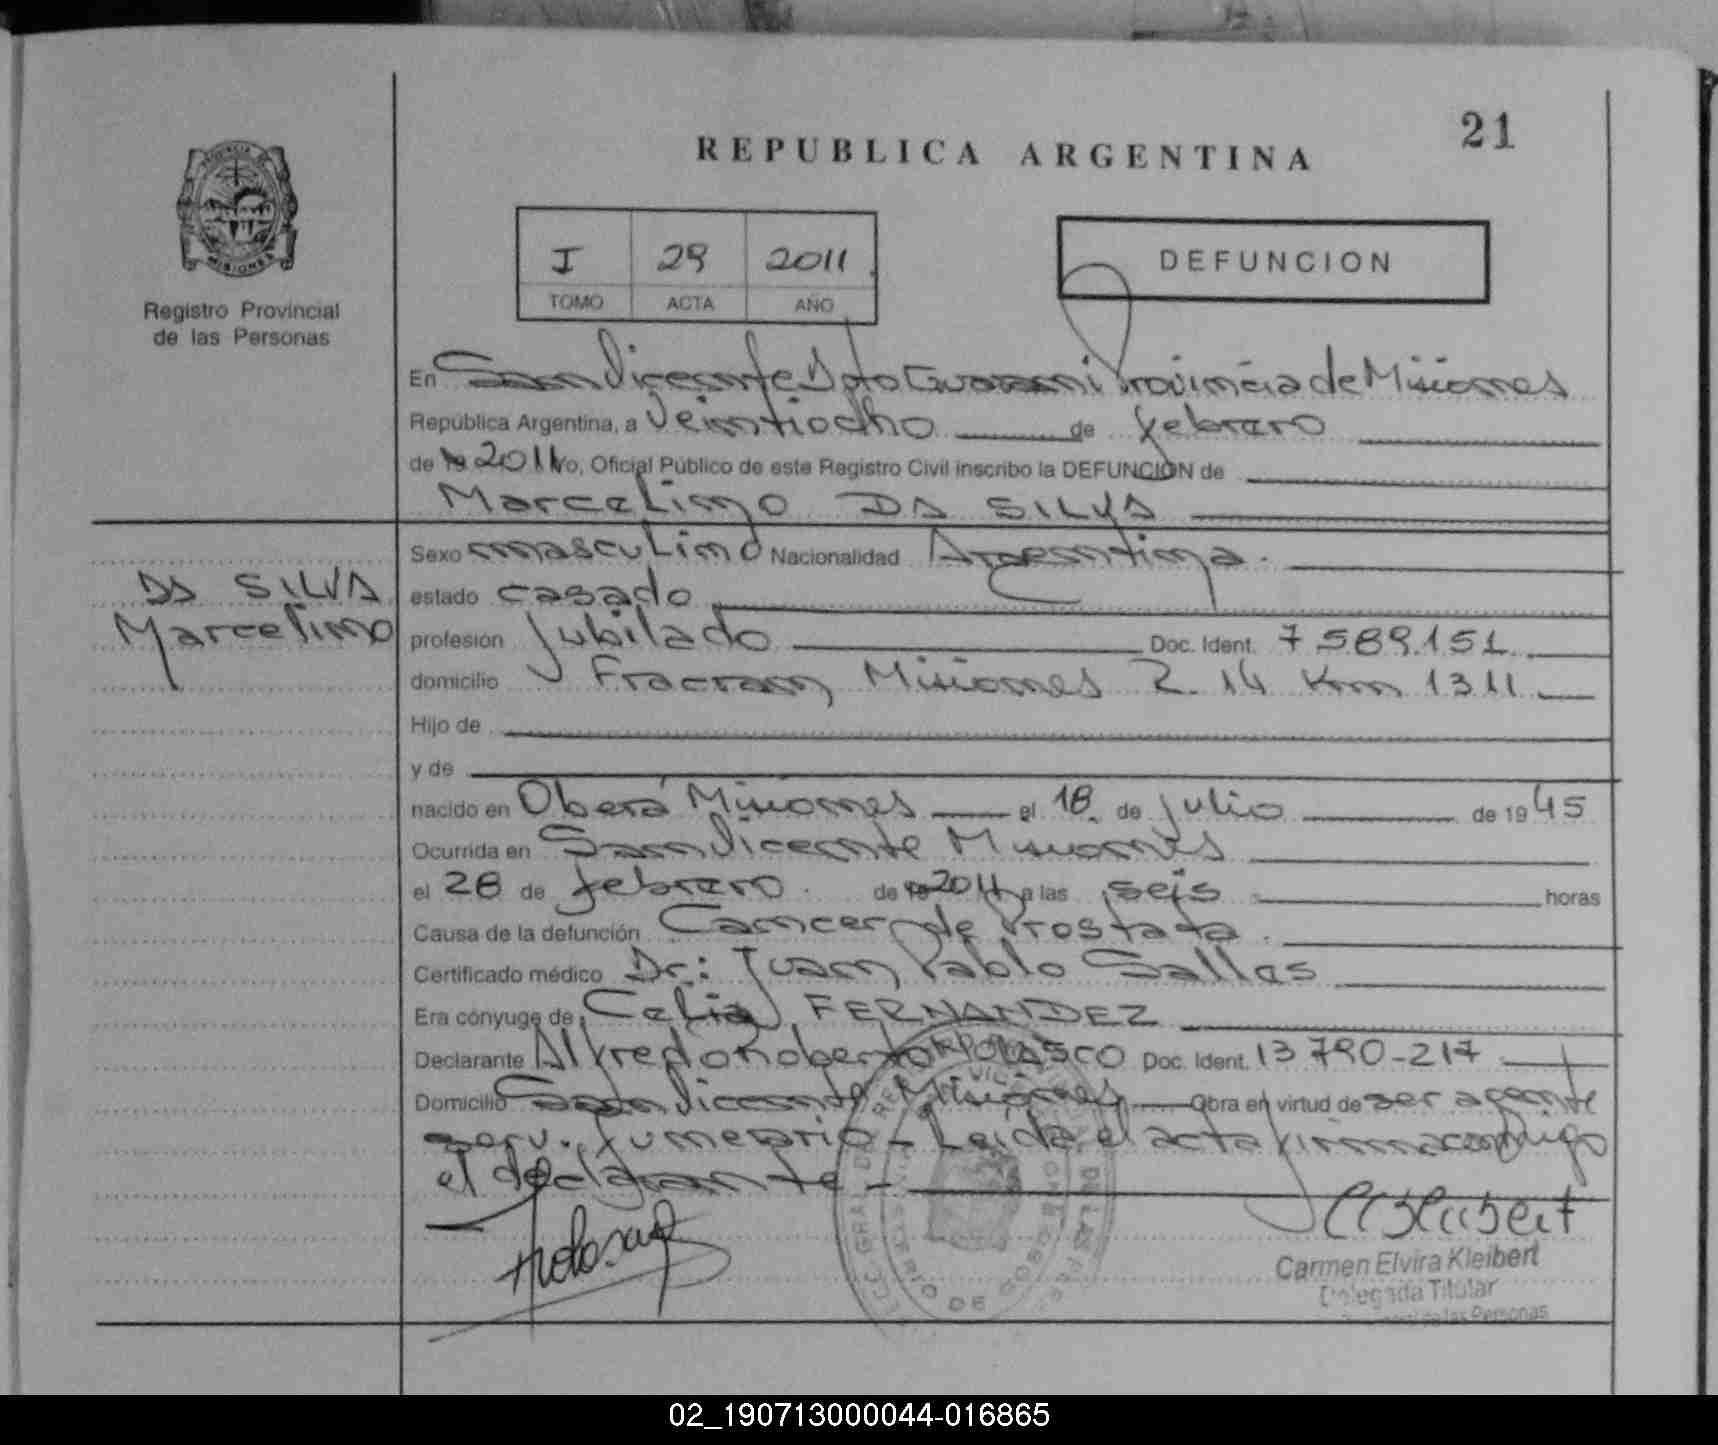 21
REPUBLICA ARGENTINA
PROVINCIA DE
MISIONES
Registro Provincial
de las Personas
I 29 2011
TOMO ACTA AÑO
DEFUNCION
En San Vicente Dpto Guarani Provincia de Misiones
República Argentina, a Veintiocho de febrero
de 19 2011 Yo, Oficial Público de este Registro Civil inscribo la DEFUNCION de
Marcelino DA SILVA
DA SILVA
Marcelino
Sexo masculino Nacionalidad Argentina.
estado casado
profesión Jubilado Doc. Ident. 7.589.151
domicilio Fracran Misiones 2 14 Km 1311
Hijo de
y de
nacido en Oberá Misiones el 18 de julio de 1945
Ocurrida en San Vicente Misiones
el 28 de febrero. de 19 2011 a las seis horas
Causa de la defunción Cancer de Prostata.
Certificado médico Dr: Juan Pablo Sallas
Era cónyuge de Celia FERNANDEZ
Declarante Alfredo Roberto Doc. Ident. 13 790-217
Domicilio San Vicente Misiones Obra en virtud de ser agente
serv. funerario - Leida el acta firma conmigo
el declarante -
Carmen Elvira Kleibert
Delegada Titular
de las Personas
02_190713000044-016865